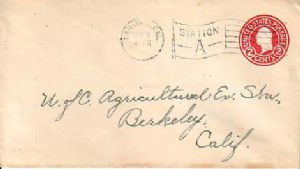 CAL.
STATION
A
UNITED STATES POSTAGE
2 CENTS 2
U of C. Agricultural Ex. Sta.
Berkeley.
Calif.